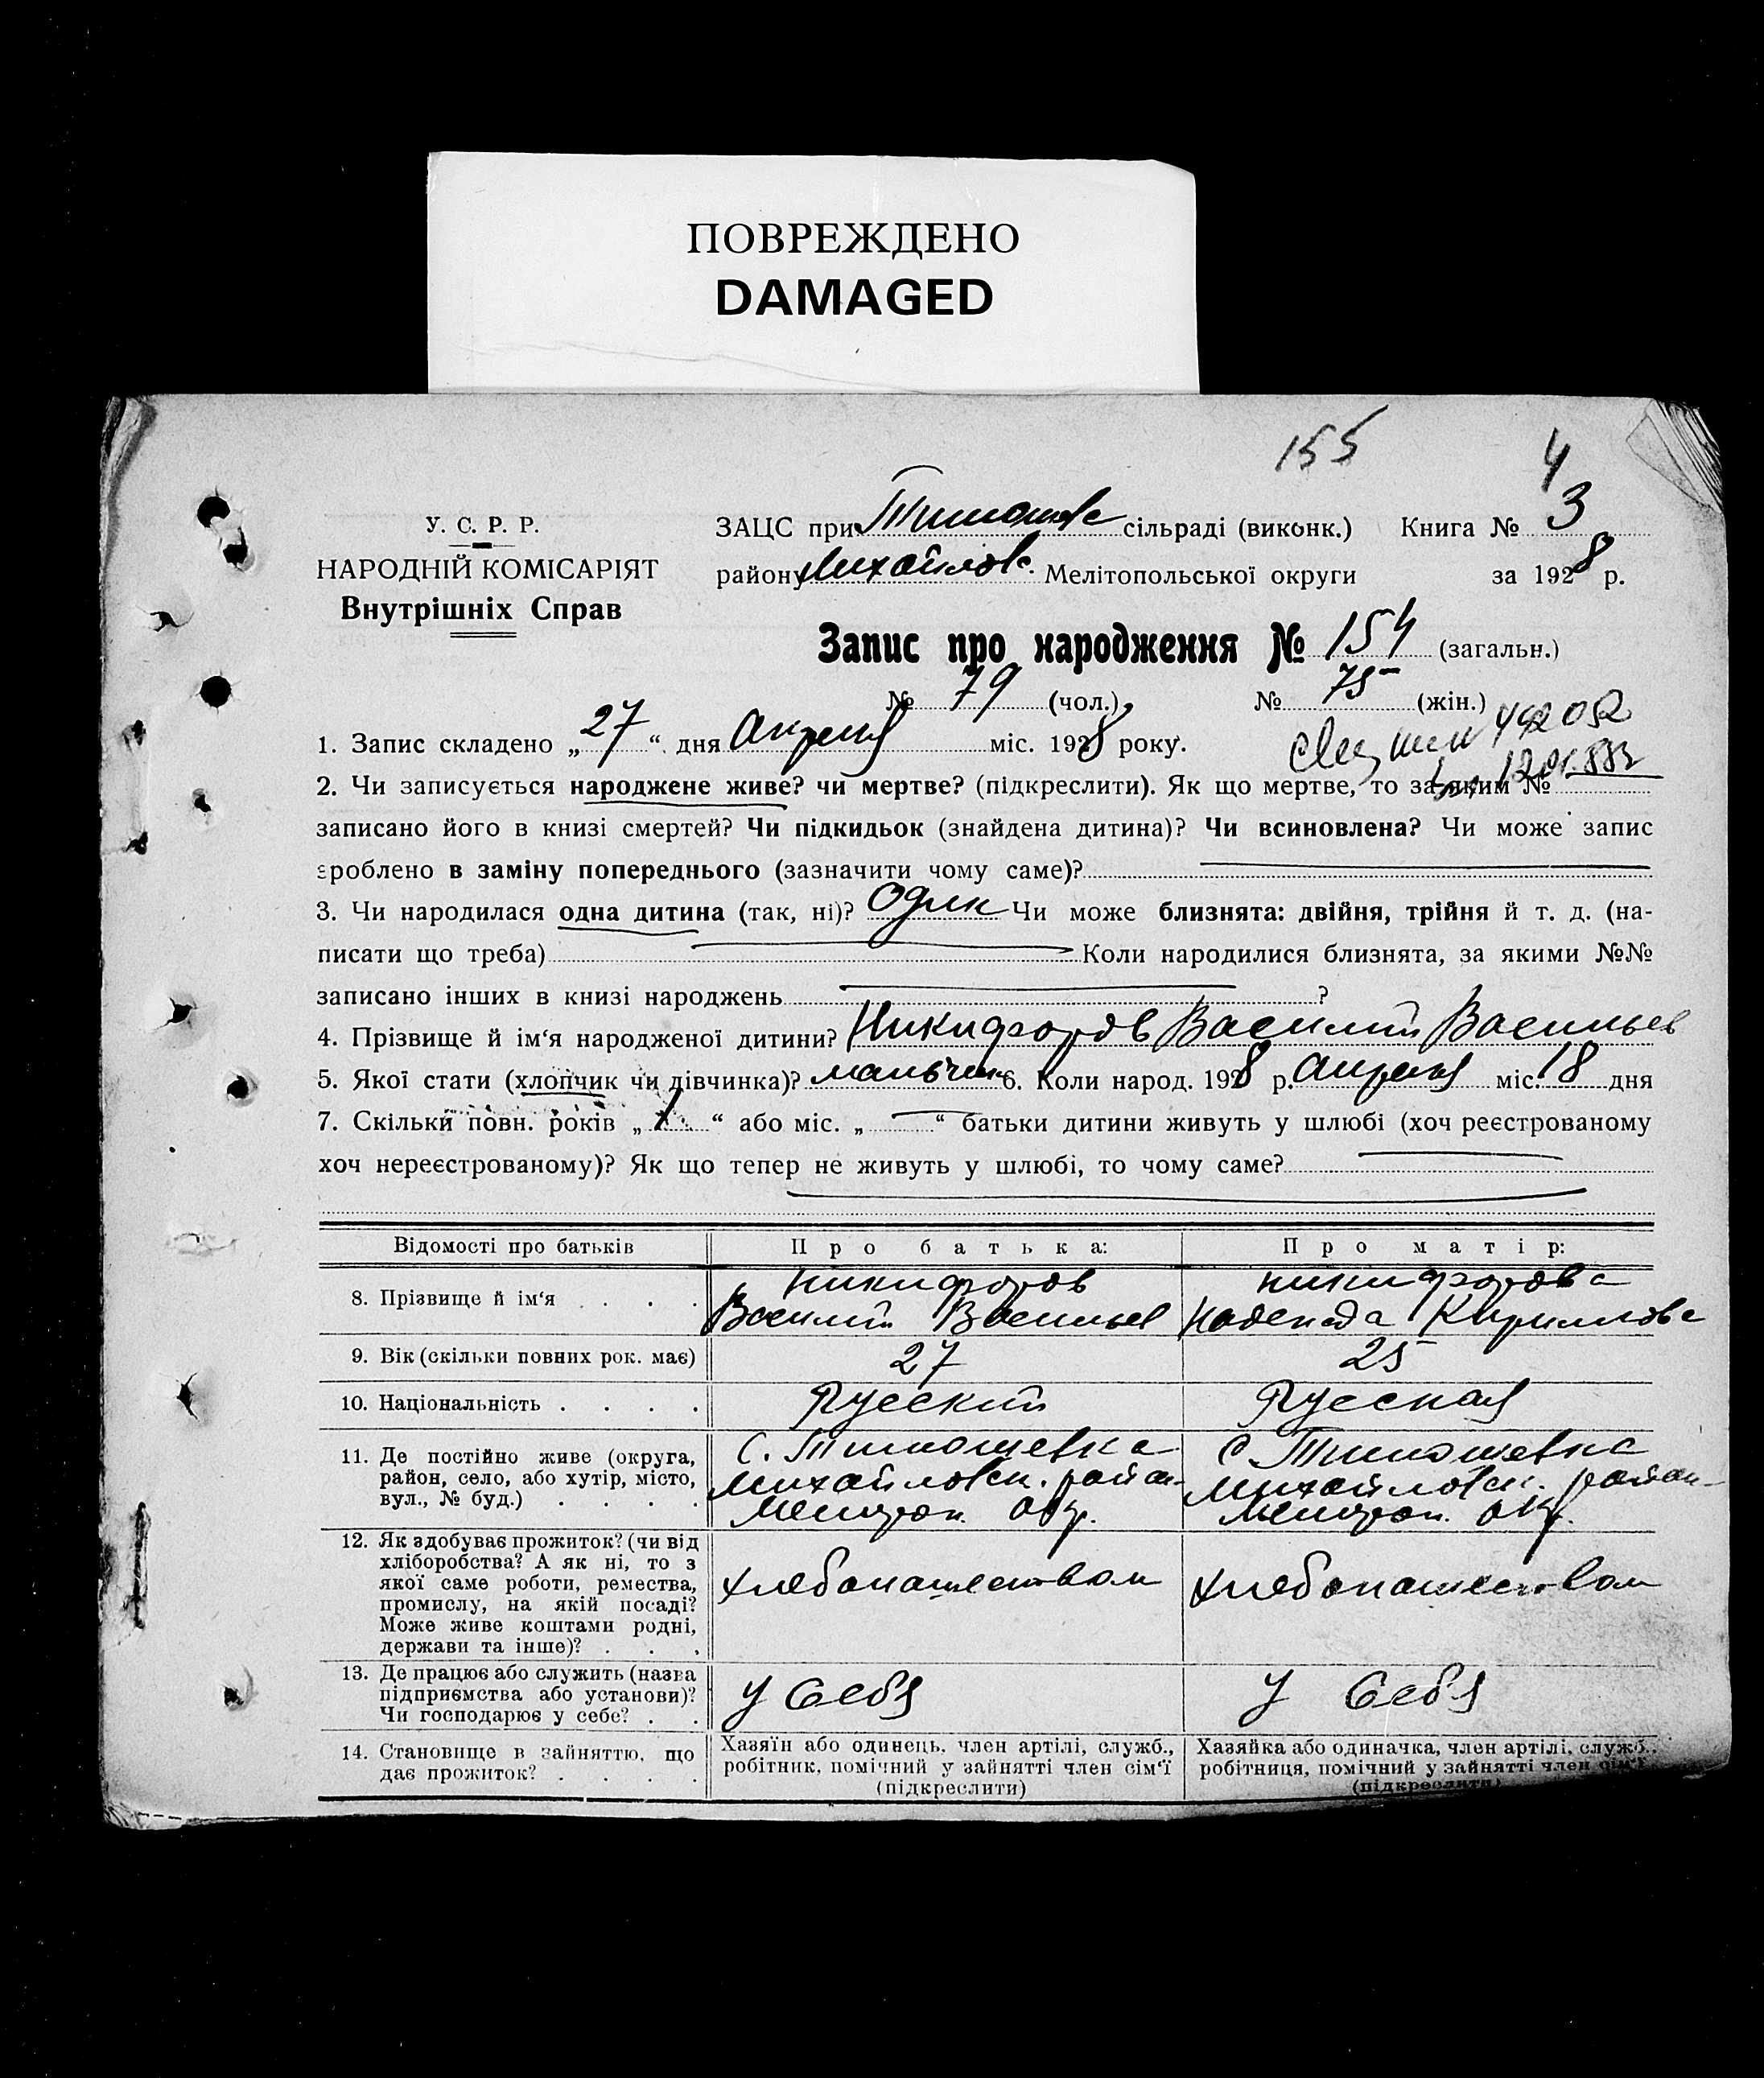 ПОВРЕЖДЕНО
DAMAGED
155
4
У. С. Р. Р.
НАРОДНІЙ КОМІСАРІЯТ
Внутрішніх Справ
ЗАЦС при Тимошовс сільраді (виконк.) Книга № 3
району Михайловс. Мелітопольської округи за 1928 р.
Запис про народження № 154 (загальн.)
№ 79 (чол.) № 75 (жін.)
1. Запис складено „27“ дня Апреля міс. 1928 року.
2. Чи записується народжене живе? чи мертве? (підкреслити). Як що мертве, то за яким №
записано його в книзі смертей? Чи підкидьок (знайдена дитина)? Чи всиновлена? Чи може запис
зроблено в заміну попереднього (зазначити чому саме)?
3. Чи народилася одна дитина (так, ні)? Один Чи може близнята: двійня, трійня й т. д. (на-
писати що треба) Коли народилися близнята, за якими №№
записано інших в книзі народжень ?
4. Прізвище й ім‘я народженої дитини? Никифоров Василий Васильев
5. Якої стати (хлопчик чи дівчинка)? мальчик 6. Коли народ. 1928 р. Апреля міс. 18 дня
7. Скільки повн. років „1“ або міс. „ “ батьки дитини живуть у шлюбі (хоч реєстрованому
хоч нереєстрованому)? Як що тепер не живуть у шлюбі, то чому саме?
Відомості про батьків Про батька: Про матір:
8. Прізвище й ім‘я . . . . Никифоров Василий Васильев Никифорова Надежда Кирилловс
9. Вік (скільки повних рок. має) 27 25
10. Національність . . . . Русский Русская
11. Де постійно живе (округа, район, село, або хутір, місто, вул., № буд.) . . . .
С. Тимошевка Михайловск. район Мелитоп. окр.
С. Тимошевка Михайловск. район Мелитоп. окр.
12. Як здобуває прожиток? (чи від хліборобства? А як ні, то з якої саме роботи, ремества, промислу, на якій посаді? Може живе коштами родні, держави та інше)? . . .
Хлебопашеством
Хлебопашеством
13. Де працює або служить (назва підприємства або установи)? Чи господарює у себе? . .
У себя
У себя
14. Становище в зайняттю, що дає прожиток? . . . .
Хазяїн або одинець, член артілі, служб., робітник, помічний у зайнятті член сім‘ї (підкреслити)
Хазяйка або одиначка, член артілі, служб., робітниця, помічний у зайнятті член сім‘ї (підкреслити)